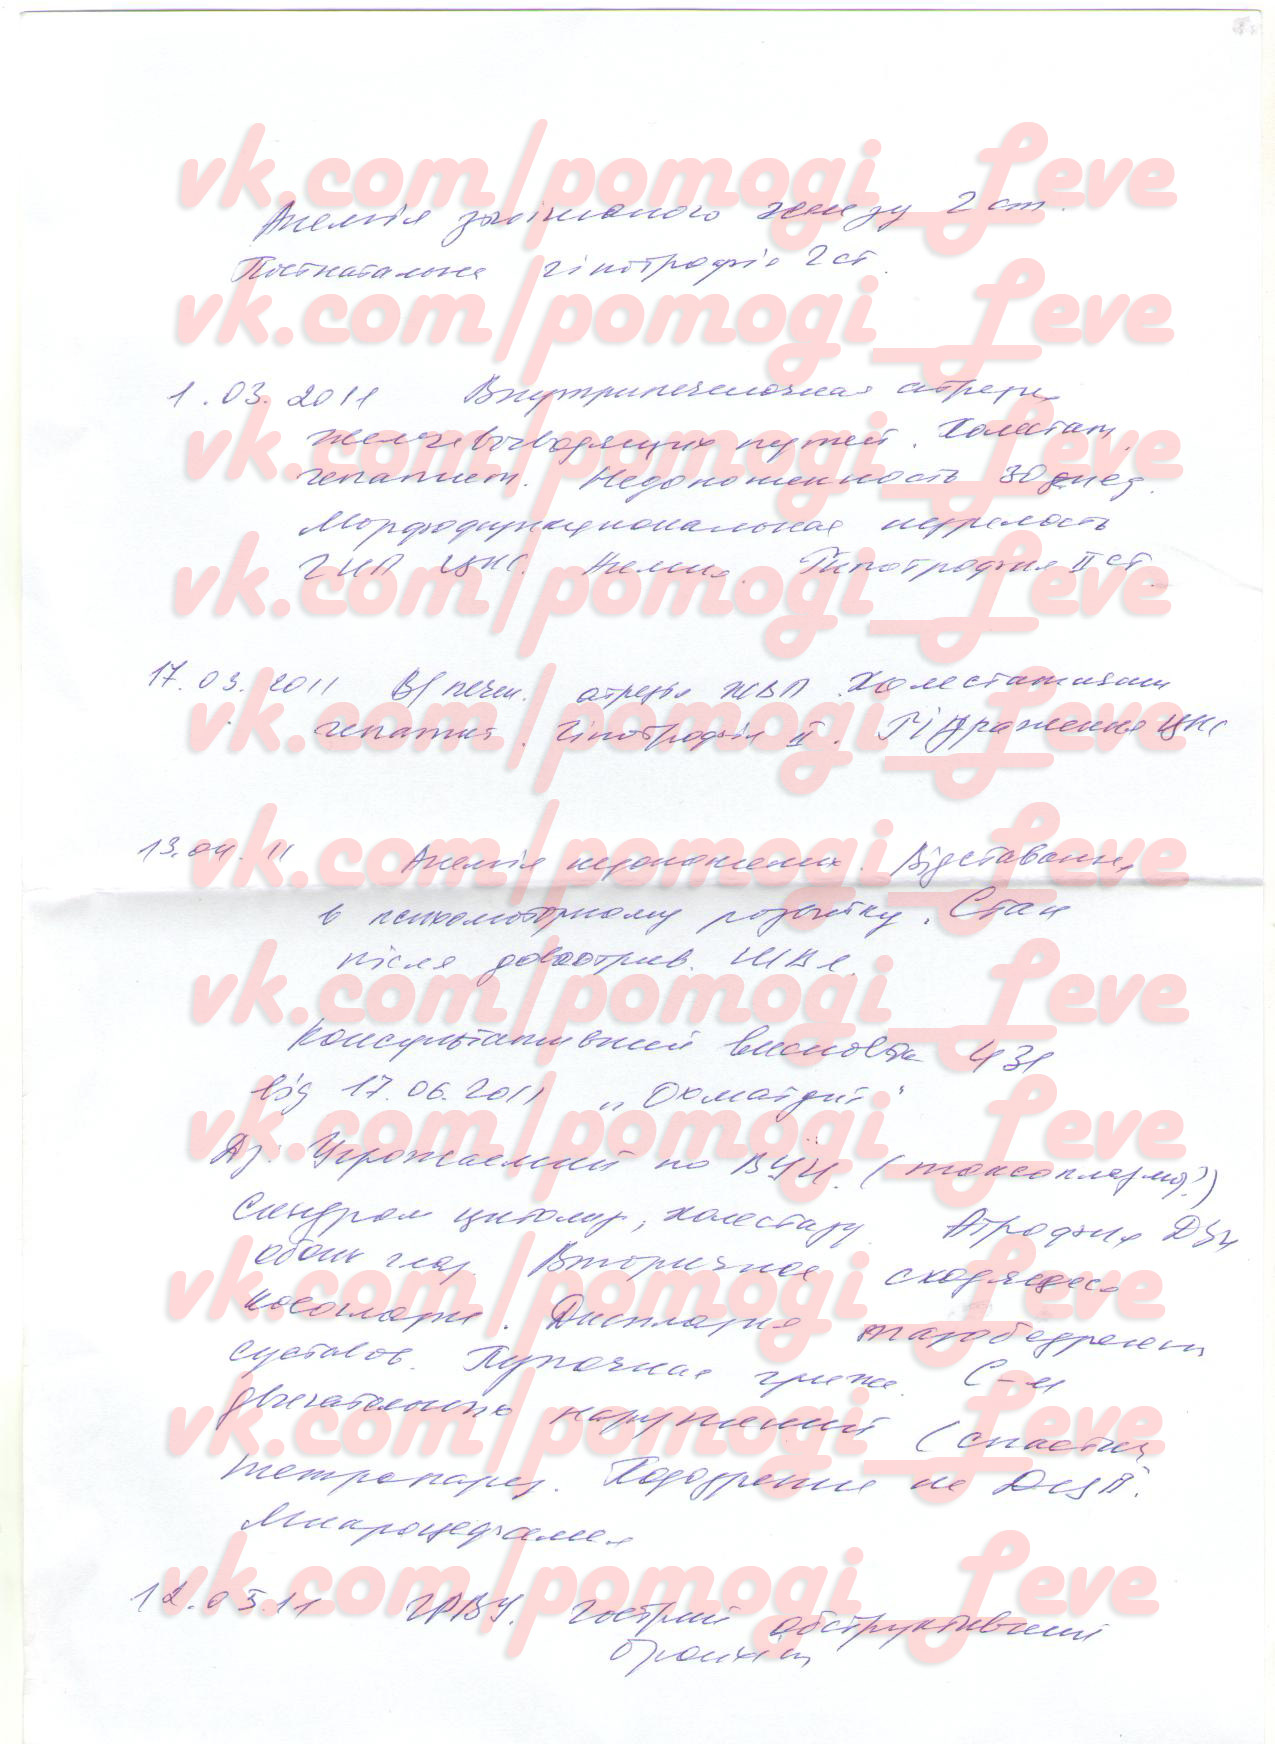 vk.com/pomogi_Leve
Анемія залізо 2 ст.
Постнатальна гіпотрофія 2 ст.
vk.com/pomogi_Leve
1.03.2011 Внутрипеченочная атрезия
vk.com/pomogi_Leve
желчевыводящих путей. Холестат.
гепатит. Недоношенность 30 нед.
Морфофункциональная незрелость
ГИП ЦНС. Анемия. Гипотрофия II ст.
vk.com/pomogi_Leve
17.03.2011 В/печен. атрезія ЖВП. Холестатичний
vk.com/pomogi_Leve
гепатит. Гіпотрофія II. ураження ЦНС
vk.com/pomogi_Leve
13.04.11 Анемія недоношених. Відставання
в психомоторному розвитку. Стан
після довготрив. ШВЛ.
vk.com/pomogi_Leve
Консультативний висновок 431
від 17.06.2011 „Охматдит"
vk.com/pomogi_Leve
Дз: Угрожаемый по ВУИ. (токсоплазмоз?)
Синдром цитолиз, холестазу. Атрофия ДЗН
обоих глаз. Вторичное сходящееся
vk.com/pomogi_Leve
косоглазие. Дисплазия тазобедренн
суставов. Пупочная грыжа. С-м
двигательных нарушений (спастич
vk.com/pomogi_Leve
тетрапарез. Подозрение на ДЦП.
Микроцефалия
vk.com/pomogi_Leve
12.05.11 ГРВІ. Гострий обструктивний
бронхіт